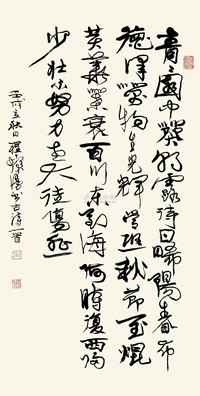 青青園中葵朝露待日晞陽春布
德澤萬物生光輝常恐秋節至焜
黃華葉衰百川東到海何時復西歸
少壯不努力老大徒傷悲
立秋日書古詩一首